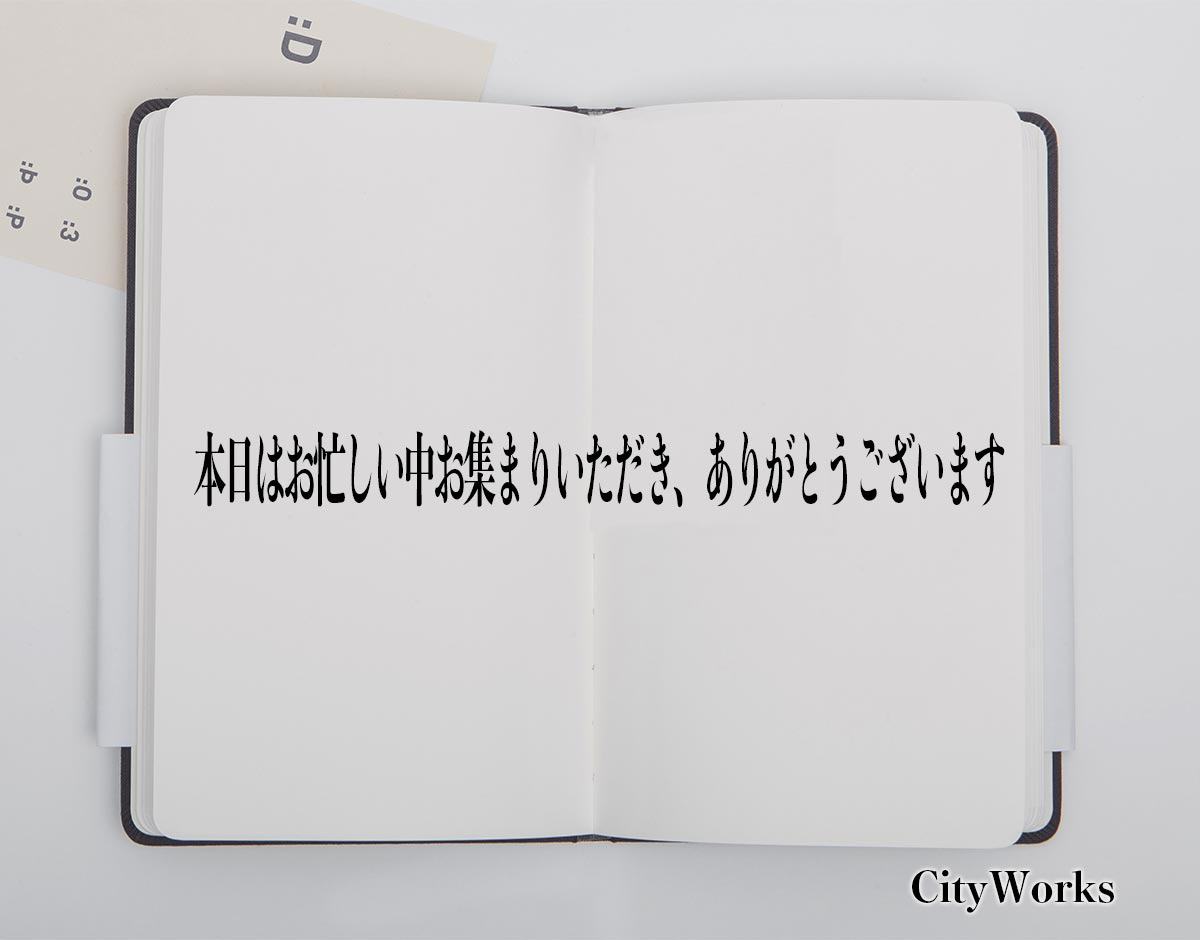 :D
:P
:O
:P
:3
本日はお忙しい中お集まりいただき、ありがとうございます
CityWorks